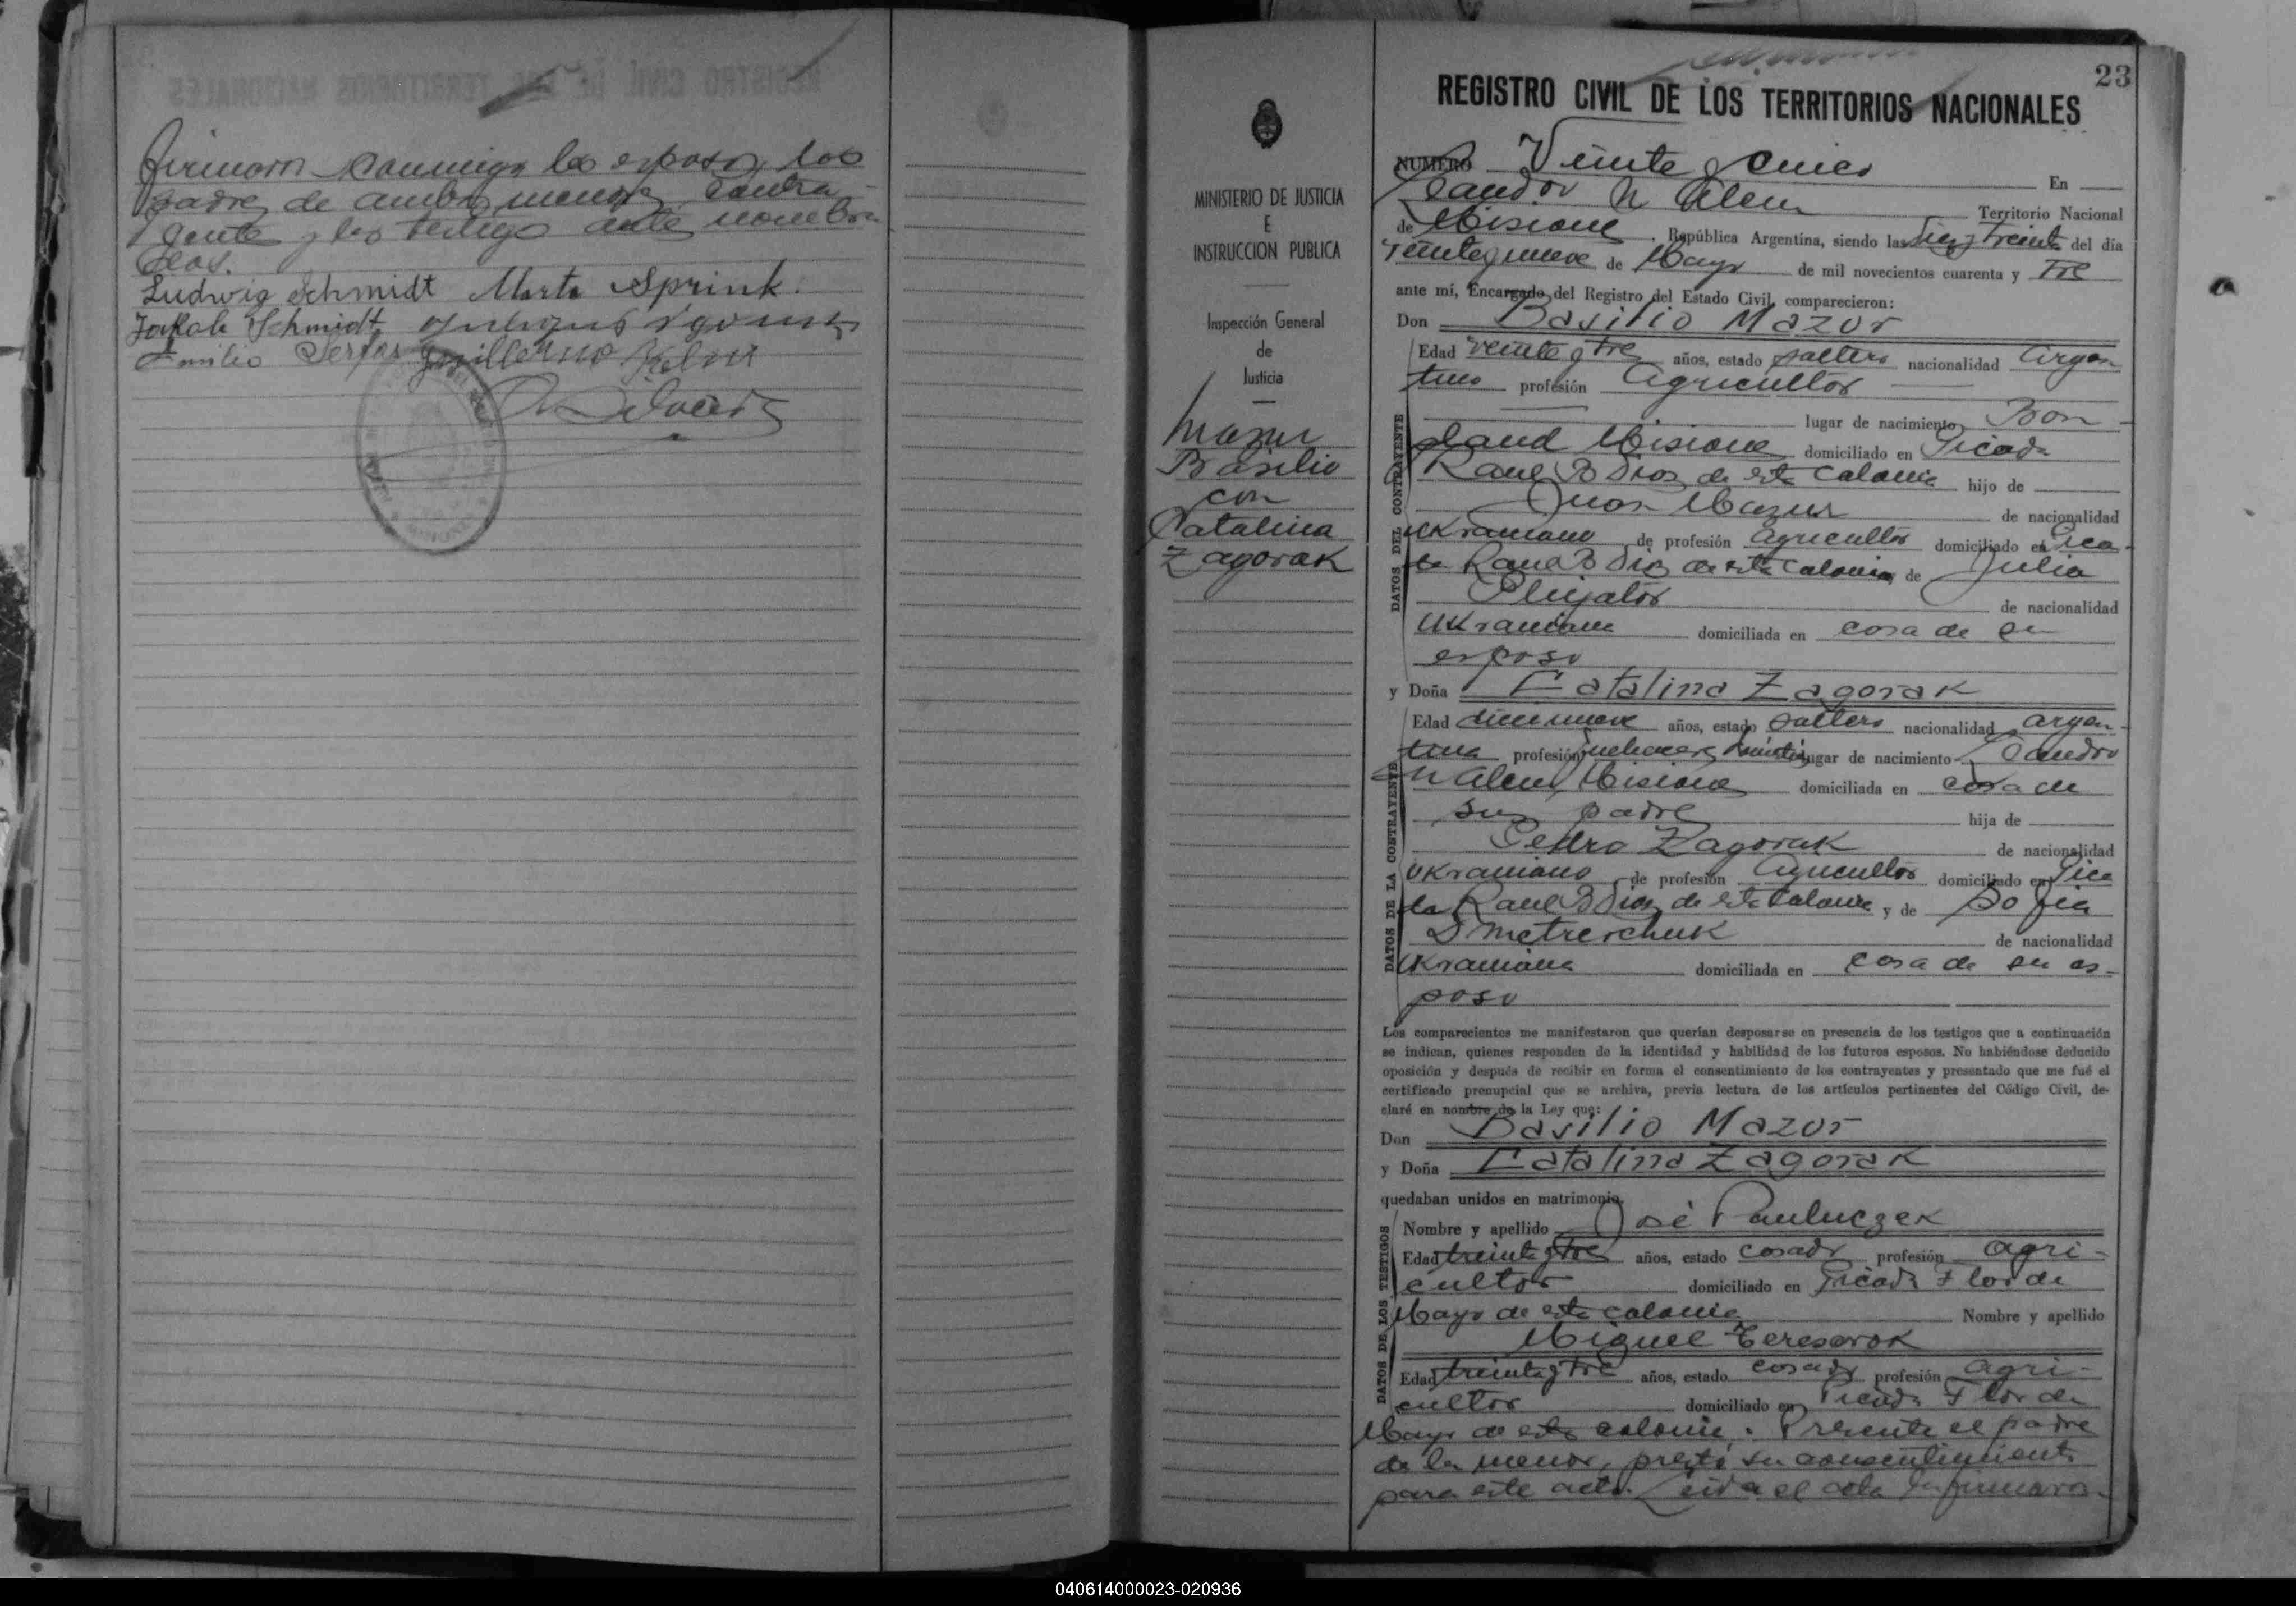 firmaron conmigo los esposos, los
padres de ambos menores contra
yentes y los testigos ante nombra
dos.
Ludwig Schmidt Marta Sprink.
Jakob Schmidt
Emilio Guillermo
23
REGISTRO CIVIL DE LOS TERRITORIOS NACIONALES
NUMERO Veinte y cinco En
Leandro N Alem Territorio Nacional
de Misiones, República Argentina, siendo las diez y treinta del día
veinte y nueve de Mayo de mil novecientos cuarenta y tres
ante mí, Encargado del Registro del Estado Civil, comparecieron:
Don Basilio Mazur
Edad veinte y tres años, estado soltero nacionalidad Argen
tino profesión Agricultor
lugar de nacimiento Bon
pland Misiones domiciliado en Picada
Raul B Diaz de esta Colonia hijo de
Juan Mazur de nacionalidad
Ukraniano de profesión Agricultor domiciliado en Pica-
da Raul B Diaz de esta Colonia, de Julia
de nacionalidad
Ukraniana domiciliada en casa de su
esposo
y Doña Catalina Zagorak
Edad diecinueve años, estado soltera nacionalidad argen-
tina profesión quehaceres lugar de nacimiento Leandro
N Alem, Misiones domiciliada en casa de
sus padres hija de
Pedro Zagorak de nacionalidad
Ukraniano de profesión Agricultor domiciliado en Pica
da Raul B Diaz de esta Colonia y de Sofia
Dmetrerchuk de nacionalidad
Ukraniana domiciliada en casa de su es-
poso
Los comparecientes me manifestaron que querían desposarse en presencia de los testigos que a continuación
se indican, quienes responden de la identidad y habilidad de los futuros esposos. No habiéndose deducido
oposición y después de recibir en forma el consentimiento de los contrayentes y presentado que me fué el
certificado prenupcial que se archiva, previa lectura de los artículos pertinentes del Código Civil, de-
claré en nombre de la Ley que:
Don Basilio Mazur
y Doña Catalina Zagorak
quedaban unidos en matrimonio.
Nombre y apellido José Pauluczek
Edad treinta y tres años, estado casado profesión agri-
cultor domiciliado en Picada Flor de
Mayo de esta colonia Nombre y apellido
Miguel Tereserok
Edad treinta y tres años, estado casado profesión agri-
cultor domiciliado en Picada Flor de
Mayo de esta colonia. Presente el padre
de la menor, prestó su consentimiento
para este acto. Leida el acta la firmaron
DATOS DEL CONTRAYENTE
DATOS DE LA CONTRAYENTE
DATOS DE LOS TESTIGOS
MINISTERIO DE JUSTICIA
E
INSTRUCCION PUBLICA
Inspección General
de
Justicia
Mazur
Basilio
con
Catalina
Zagorak
040614000023-020936